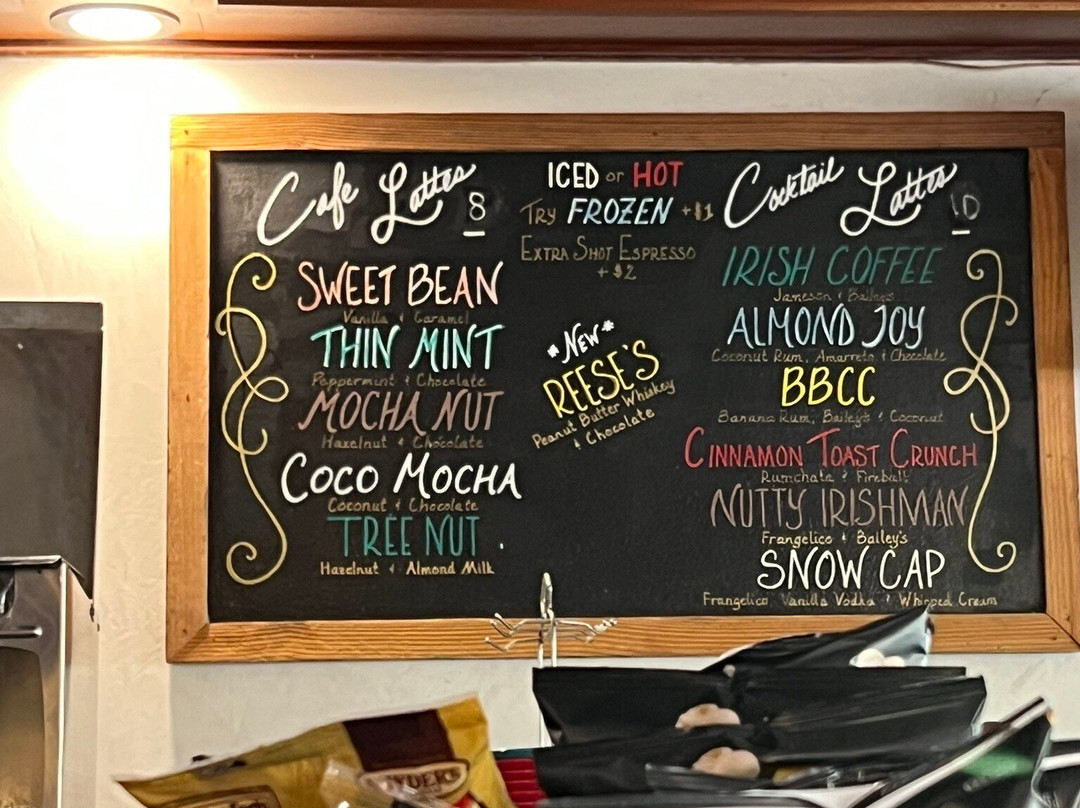 Cafe Lattes 8
SWEET BEAN
Vanilla & Caramel
THIN MINT
Peppermint & Chocolate
MOCHA NUT
Hazelnut & Chocolate
COCO MOCHA
Coconut & Chocolate
TREE NUT
Hazelnut & Almond Milk
ICED or HOT
TRY FROZEN +$1
EXTRA SHOT ESPRESSO
+$2
*NEW*
REESE'S
Peanut Butter Whiskey
& Chocolate
Cocktail Lattes 10
IRISH COFFEE
Jameson & Baileys
ALMOND JOY
Coconut Rum, Amarreto & Chocolate
BBCC
Banana Rum, Bailey's & Coconut
CINNAMON TOAST CRUNCH
Rumchata & Fireball
NUTTY IRISHMAN
Frangelico & Bailey's
SNOW CAP
Frangelico, Vanilla Vodka & Whipped Cream